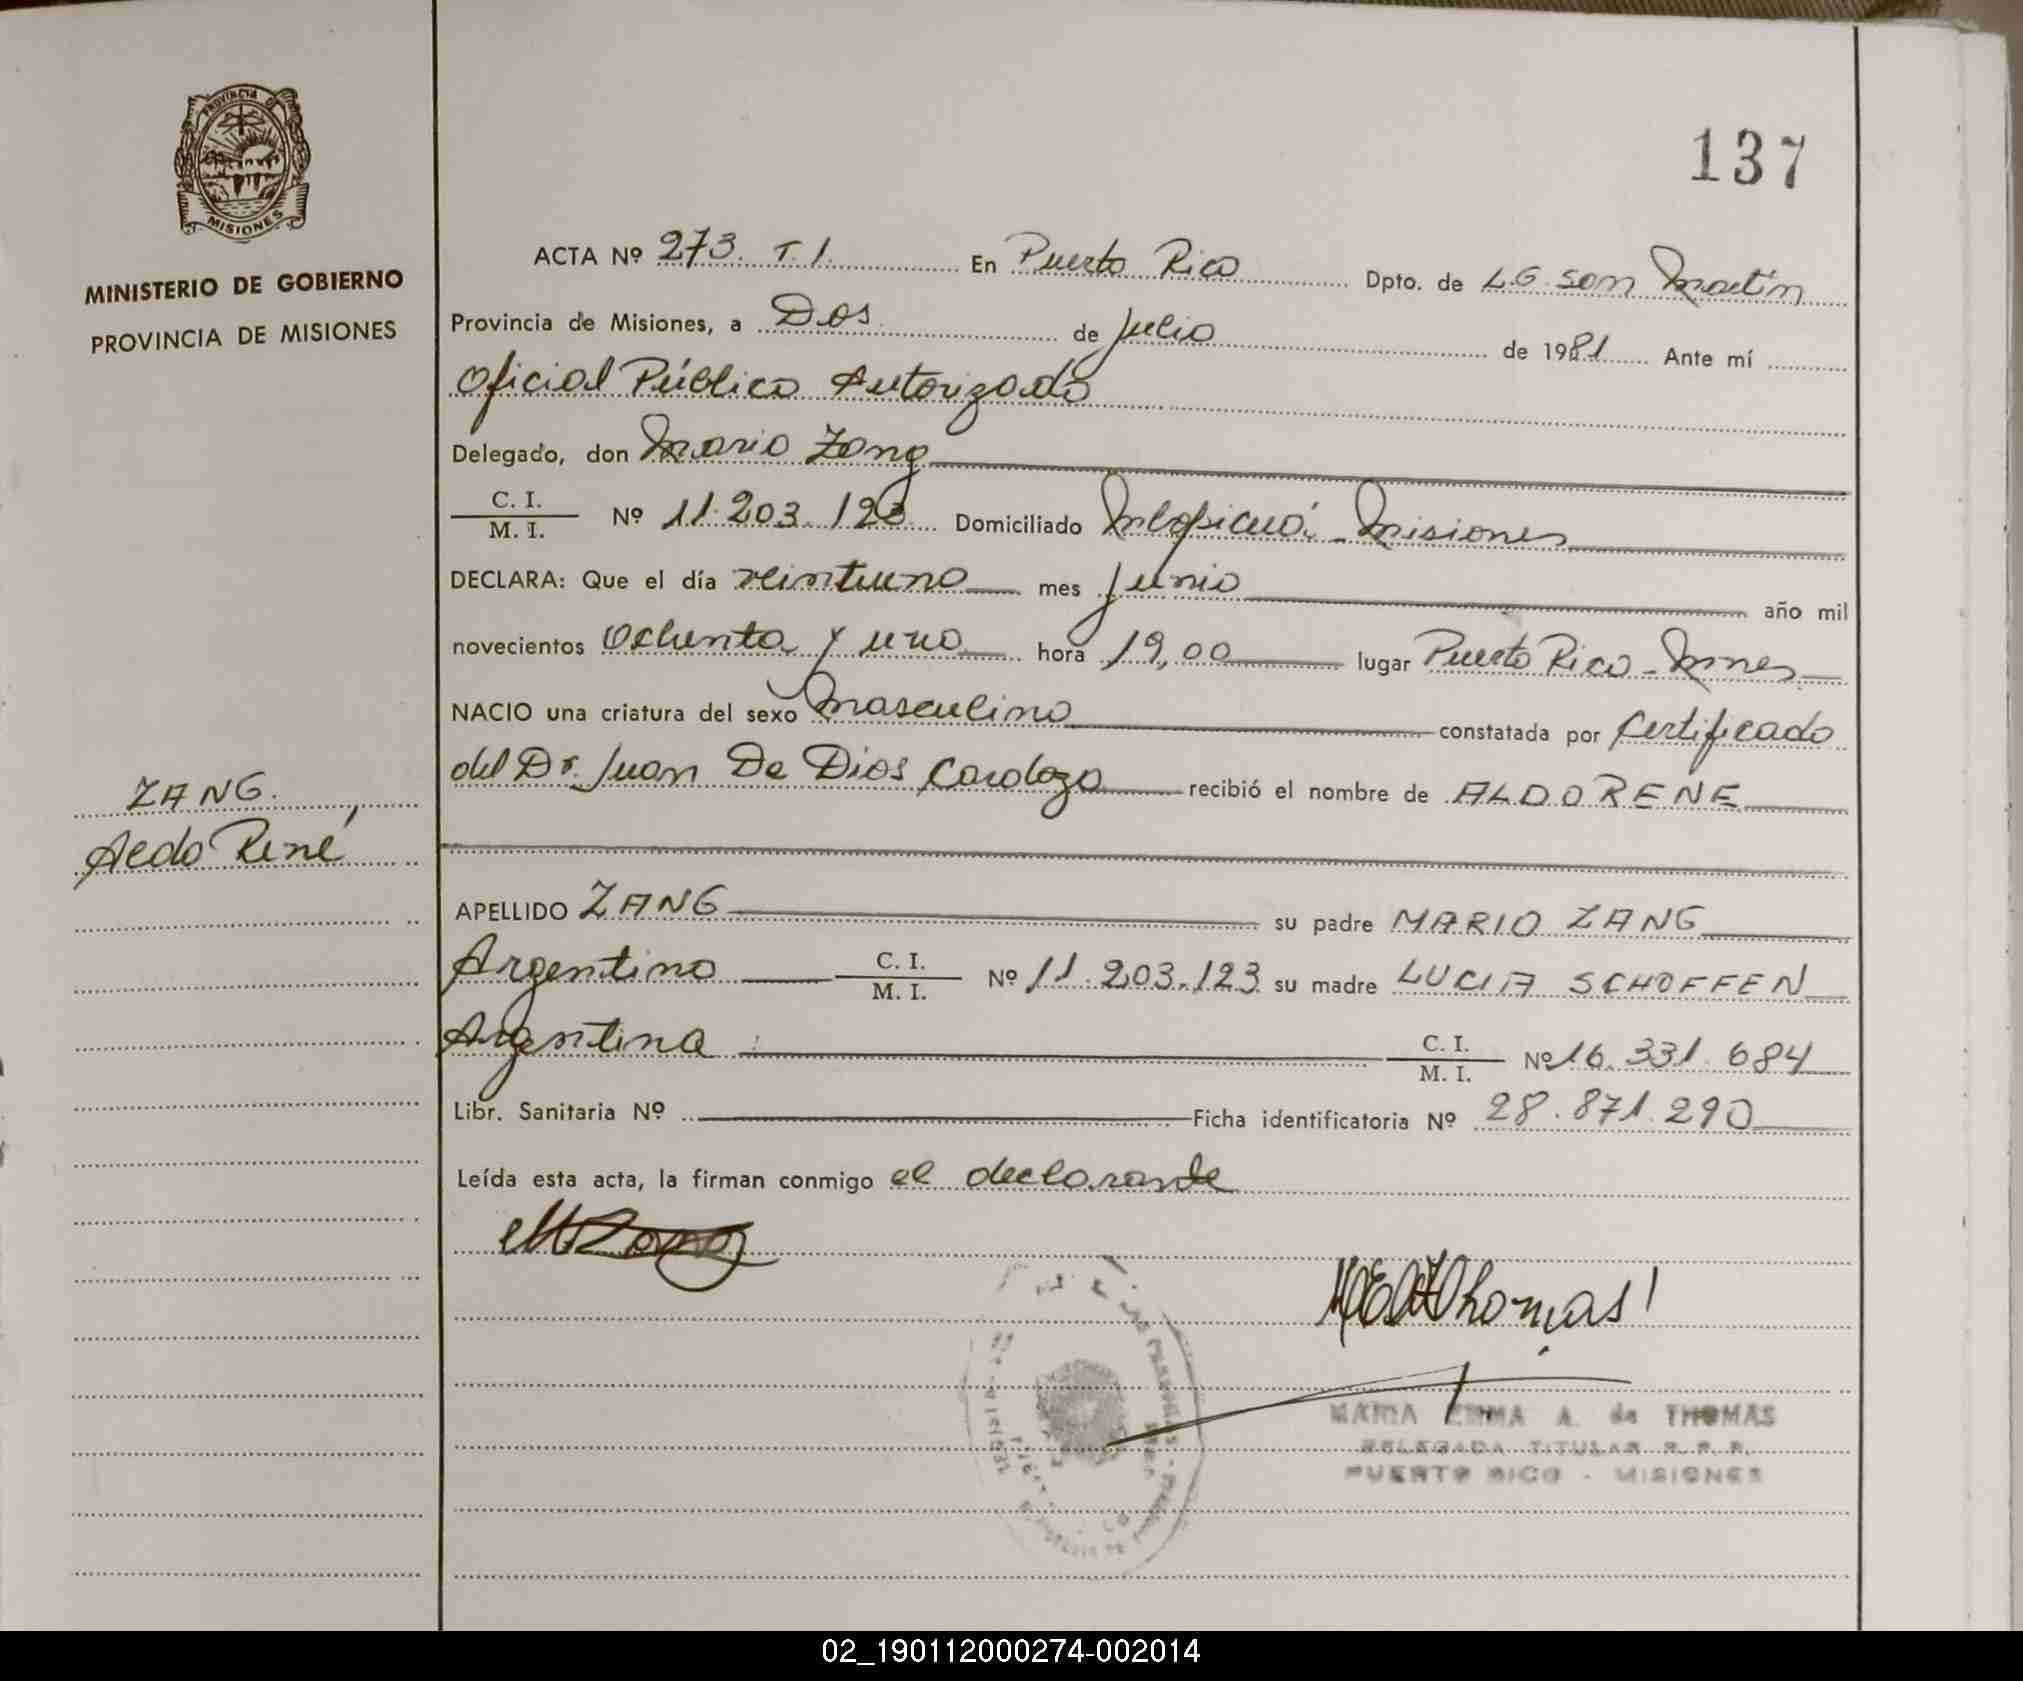 137
PROVINCIA DE
MISIONES
MINISTERIO DE GOBIERNO
PROVINCIA DE MISIONES
ZANG.
Aldo René
ACTA Nº 273. T. I. En Puerto Rico Dpto. de L.G. San Martín
Provincia de Misiones, a Dos de Julio de 1981 Ante mí
Oficial Público Autorizado
Delegado, don Mario Zang
C. I.
M. I. Nº 11.203.123 Domiciliado Mbopicuá - Misiones
DECLARA: Que el día veintiuno mes Junio año mil
novecientos Ochenta y uno hora 19,00 lugar Puerto Rico - Mnes
NACIO una criatura del sexo Masculino constatada por Certificado
del Dr. Juan De Dios Cardozo recibió el nombre de ALDO RENE
APELLIDO ZANG su padre MARIO ZANG
Argentino C. I.
M. I. Nº 11.203.123 su madre LUCIA SCHOFFEN
Argentina C. I.
M. I. Nº 16.331.684
Libr. Sanitaria Nº Ficha identificatoria Nº 28.871.290
Leída esta acta, la firman conmigo el declarante
MZang
MEAThomas
MARIA EMMA A. de THOMAS
DELEGADA TITULAR R. P. P.
PUERTO RICO - MISIONES
02_190112000274-002014